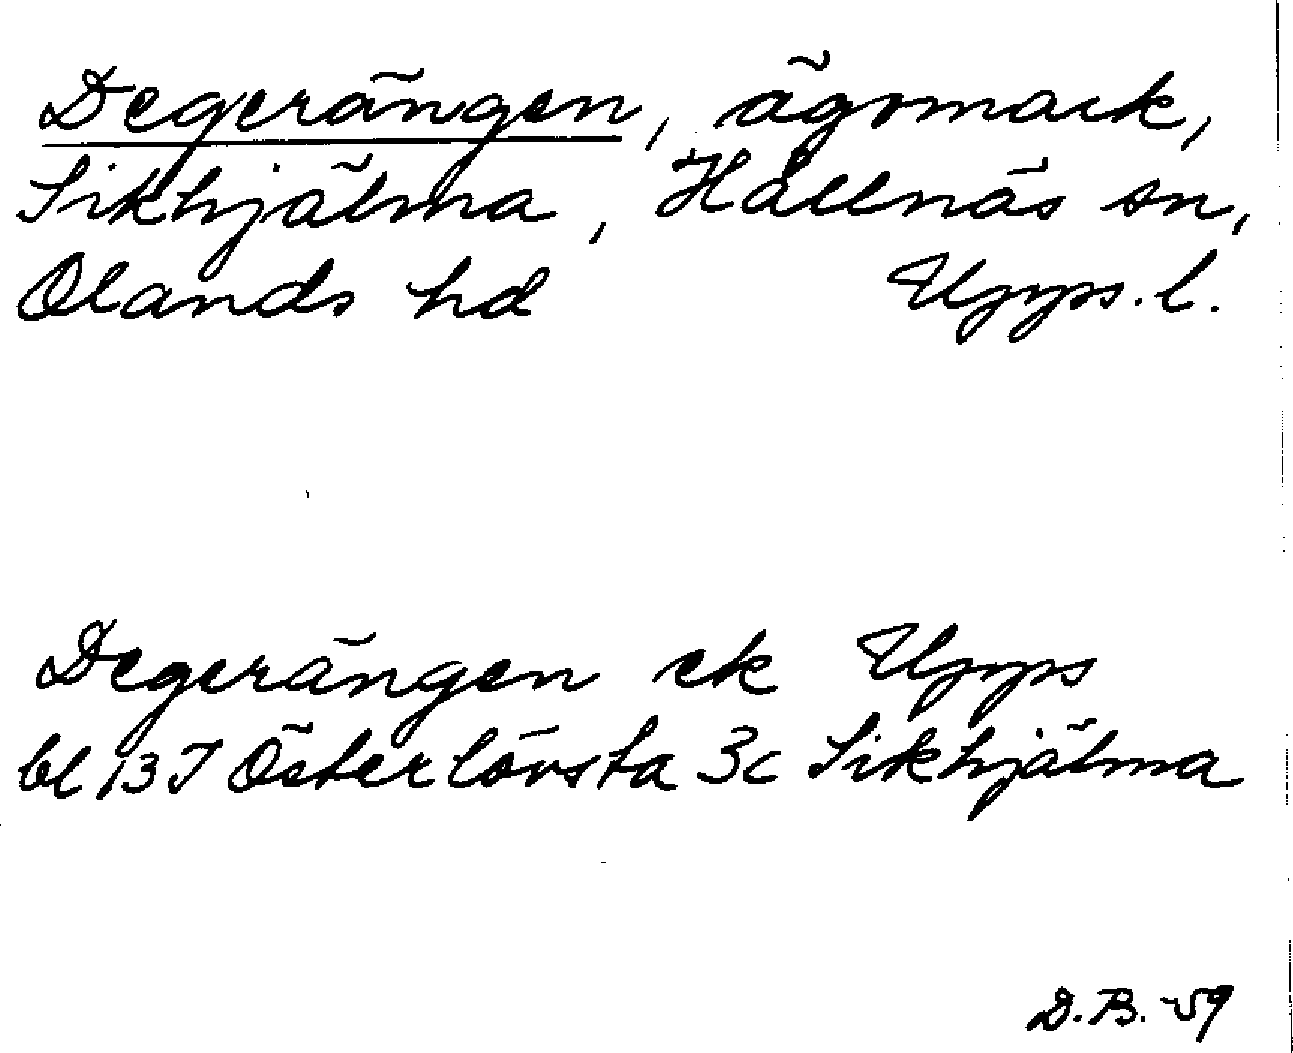 Degerängen, ägomark,
Sikhjälma, Hållnäs sn,
Olands hd Upps. l.
Degerängen ek Upps
bl 13 I Österlövsta 3c Sikhjälma
D.B. -59